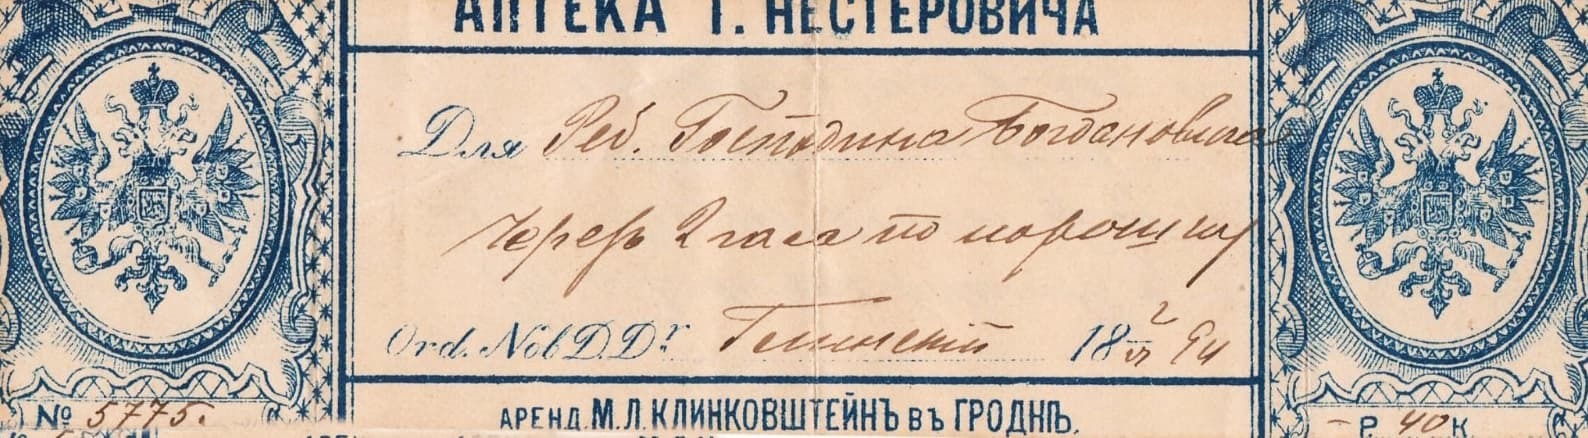 АПТЕКА Г. НЕСТЕРОВИЧА
Для Реб. Господина Богдановича
Черезъ 2 часа по порошку
Ord. Nob D. Dr. 18 2/VI 94
АРЕНД. М. Л. КЛИНКОВШТЕЙНЪ ВЪ ГРОДНѢ.
№ 5775.
– Р. 40 К.